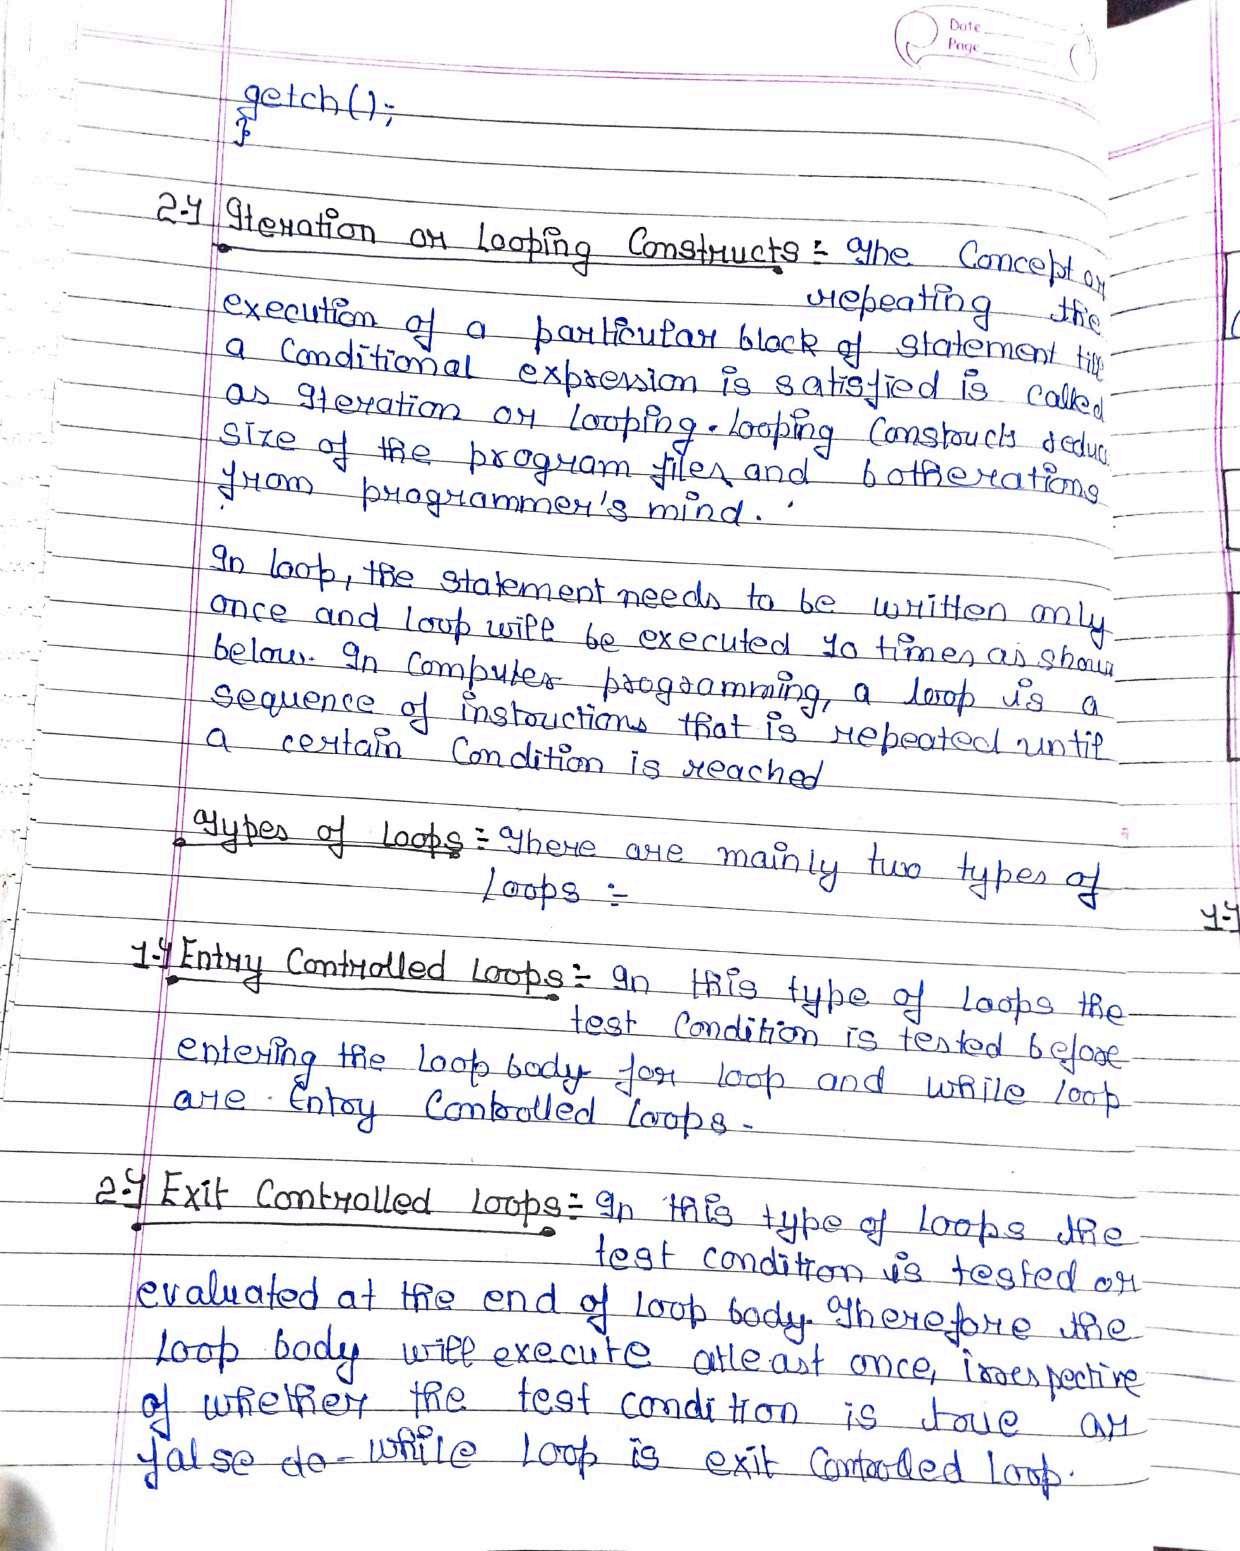 Date
Page
getch();
}
2.) Iteration or Looping Constructs :- The Concept or
repeating the
execution of a particular block of statement till
a Conditional expression is satisfied is called
as Iteration or Looping. Looping Constructs reduc
size of the program files and botherations
from programmer's mind.
In loop, the statement needs to be written only
once and loop will be executed 10 times as show
below. In Computer programming, a loop is a
sequence of instructions that is repeated until
a certain Condition is reached
Types of Loops :- There are mainly two types of
Loops :-
1.) Entry Controlled Loops :- In this type of Loops the
test Condition is tested before
entering the Loop body for loop and while loop
are Entry Controlled Loops.
2.) Exit Controlled Loops :- In this type of Loops the
test condition is tested or
evaluated at the end of Loop body. Therefore the
Loop body will execute atleast once, irrespective
of whether the test condition is true or
false do-while Loop is exit Controlled Loop.
1.)